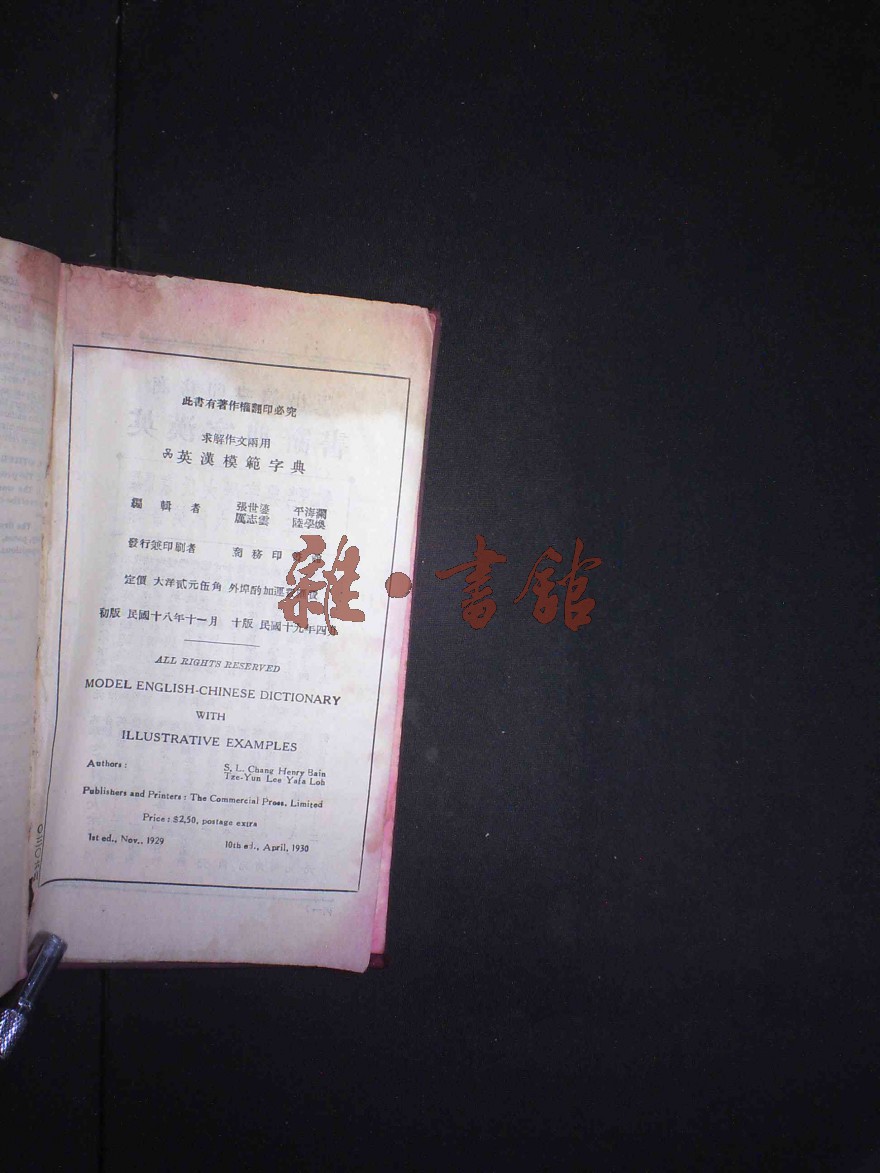 此書有著作權翻印必究
求解作文兩用
英漢模範字典
編輯者 張世鎏 平海瀾
厲志雲 陸學煥
發行兼印刷者 商務印書館
定價 大洋貳元伍角 外埠酌加運費匯費
初版 民國十八年十一月 十版 民國十九年四月
ALL RIGHTS RESERVED
MODEL ENGLISH-CHINESE DICTIONARY
WITH
ILLUSTRATIVE EXAMPLES
Authors: S. L. Chang Henry Bain
Tze-Yun Lee Yafa Loh
Publishers and Printers: The Commercial Press, Limited
Price: $2,50, postage extra
1st ed., Nov., 1929 10th ed., April, 1930
雜·書館